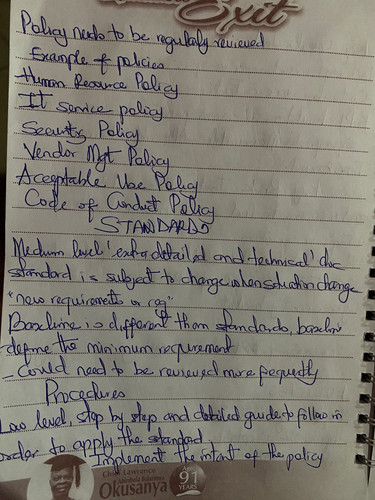 Exit
Policy needs to be regularly reviewed
Example of policies
Human Resource Policy
IT service policy
Security Policy
Vendor Mgt Policy
Acceptable Use Policy
Code of Conduct Policy
STANDARDS
Medium level 'extra detailed and technical' doc
standard is subject to change when situation change
"new requirements or reg"
Baseline is different than standards, baseline
define the minimum requirement
- Could need to be reviewed more frequently
Procedures
Low level, step by step and detailed guide to follow in
order to apply the standard
Implement the intent of the policy
Chief Lawrence
Okusanya
91
YEARS